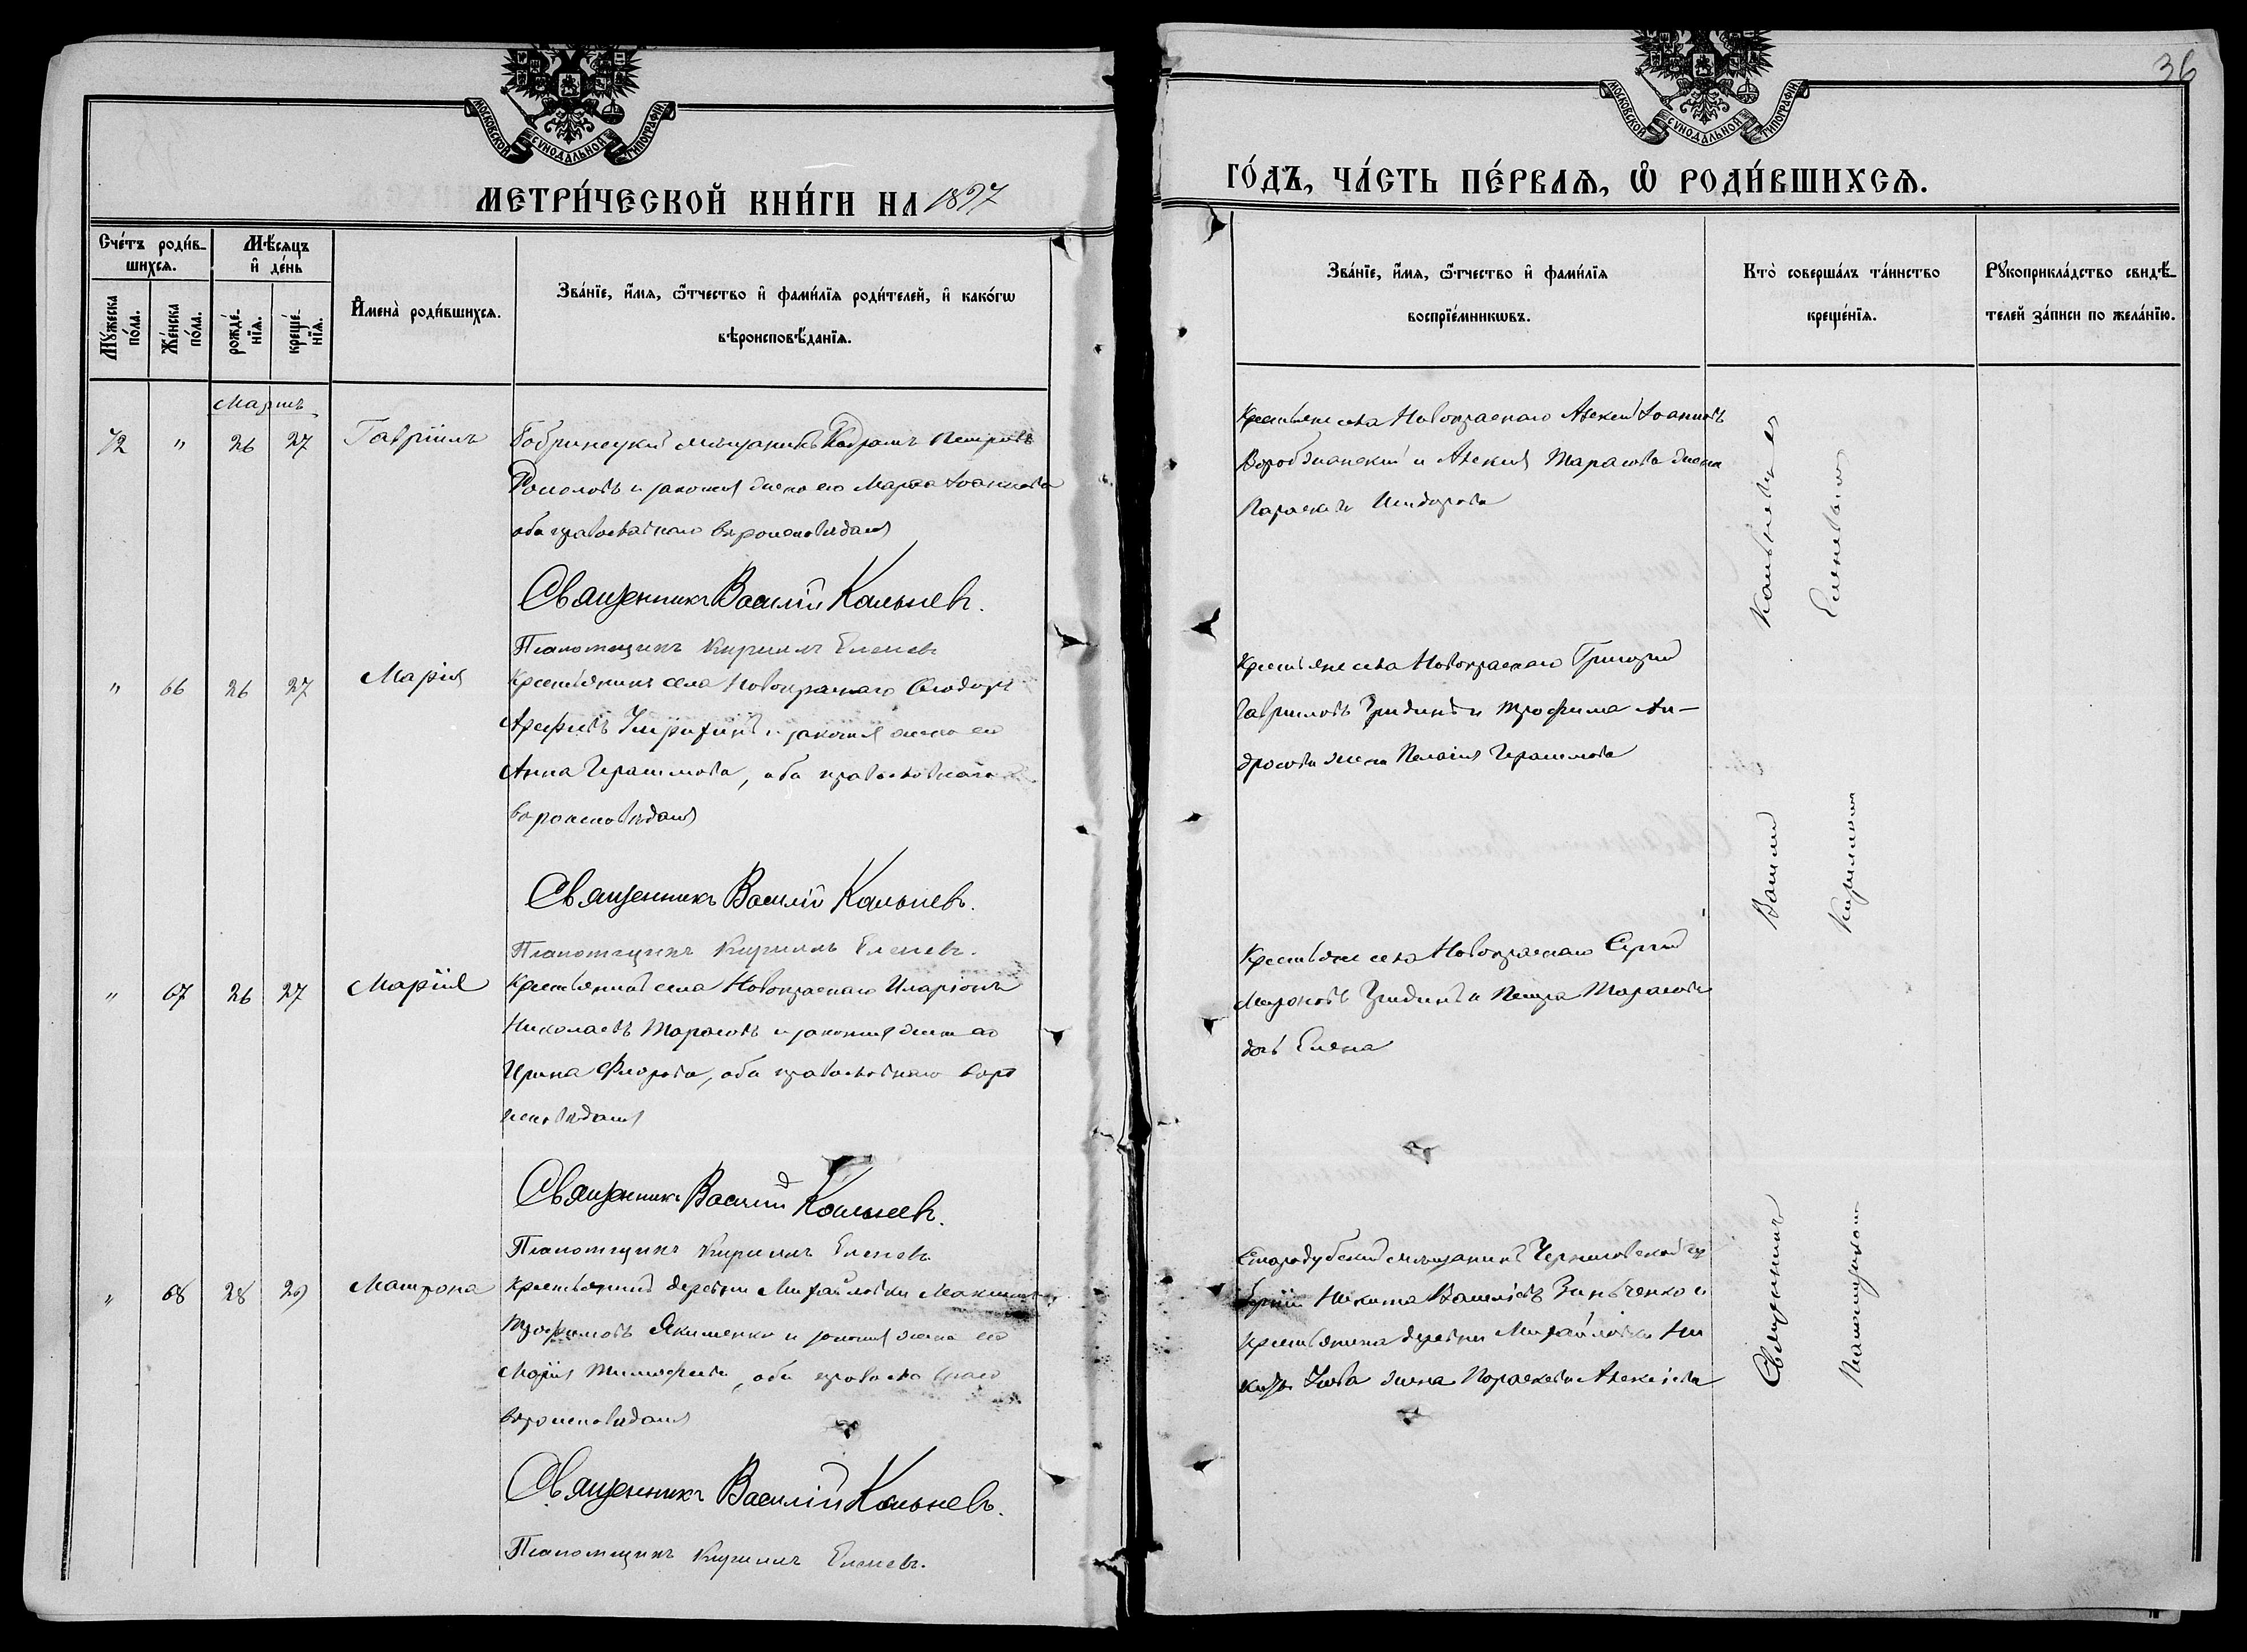 МОСКОВСКОЙ СУНОДАЛЬНОЙ ТИПОГРАФІИ
МЕТРИ́ЧЕСКОЙ КНИ́ГИ НА 1897
Сче́тъ роди́в-
шихся.
Мѣ́сяцъ
и҆ де́нь
Мꙋ́жеска
по́ла.
Же́нска
по́ла.
рожде́-
нїя.
креще́-
нїя.
И҆мена̀ роди́вшихся.
Зва́нїе, и҆́мя, ѻ҆́тчество и҆ фами́лїя роди́телей, и҆ како́гѡ
вѣроисповѣ́данїя.
Мартъ
72 " 26 27 Гавріилъ
Бобринецкій мѣщанинъ Петровъ
и законная жена его Марѳа Іоаннова
оба православнаго вѣроисповѣданія
Священникъ Василій Кальневъ.
Псаломщикъ Кириллъ Еленевъ
" 66 26 27 Марія
Крестьянинъ села Новокраснаго Ѳеодоръ
Арефьевъ и законная жена его
Анна Герасимова, оба православнаго
вѣроисповѣданія
Священникъ Василій Кальневъ.
Псаломщикъ Кириллъ Еленевъ.
" 67 26 27 Марія
Крестьянинъ села Новокраснаго Иларіонъ
Николаевъ Тарасовъ и законная жена его
Ирина Флорова, оба православнаго вѣро
исповѣданія
Священникъ Василій Кальневъ.
Псаломщикъ Кириллъ Еленевъ.
" 68 28 29 Матрона
Крестьянинъ деревни Михайловки Максимъ
Трофимовъ Якименко и законная жена его
Марія Тимофеева, оба православнаго
вѣроисповѣданія
Священникъ Василій Кальневъ.
Псаломщикъ Кириллъ Еленевъ.
36
МОСКОВСКОЙ СУНОДАЛЬНОЙ ТИПОГРАФІИ
ГО́ДЪ, ЧА́СТЬ ПЕ́РВАЯ, Ѡ҆ РОДИ́ВШИХСЯ.
Зва́нїе, и҆́мя, ѻ҆́тчество и҆ фами́лїя
воспрїе́мникѡвъ.
Кто̀ соверша́лъ та́инство
креще́нїя.
Рꙋкоприкла́дство свидѣ́-
телей за́писи по жела́нїю.
Крестьяне села Новокраснаго Алексій Іоанновъ
и Алексія Тарасова жена
Параскева
Крестьяне села Новокраснаго Григорій
Гавриловъ Гридинъ и Трофима Ан-
дросова жена Пелагія Герасимова
Крестьяне села Новокраснаго Сергій
Мироновъ Гридинъ и Петра Тарасова
дочь Елена
Стародубскій мѣщанинъ Черниговской гу
берніи Никита Васильевъ Зинченко и
крестьянина деревни Михайловки
жена Параскева Алексіева
Священникъ Василій Кальневъ съ
Псаломщикомъ Кирилломъ Еленевымъ